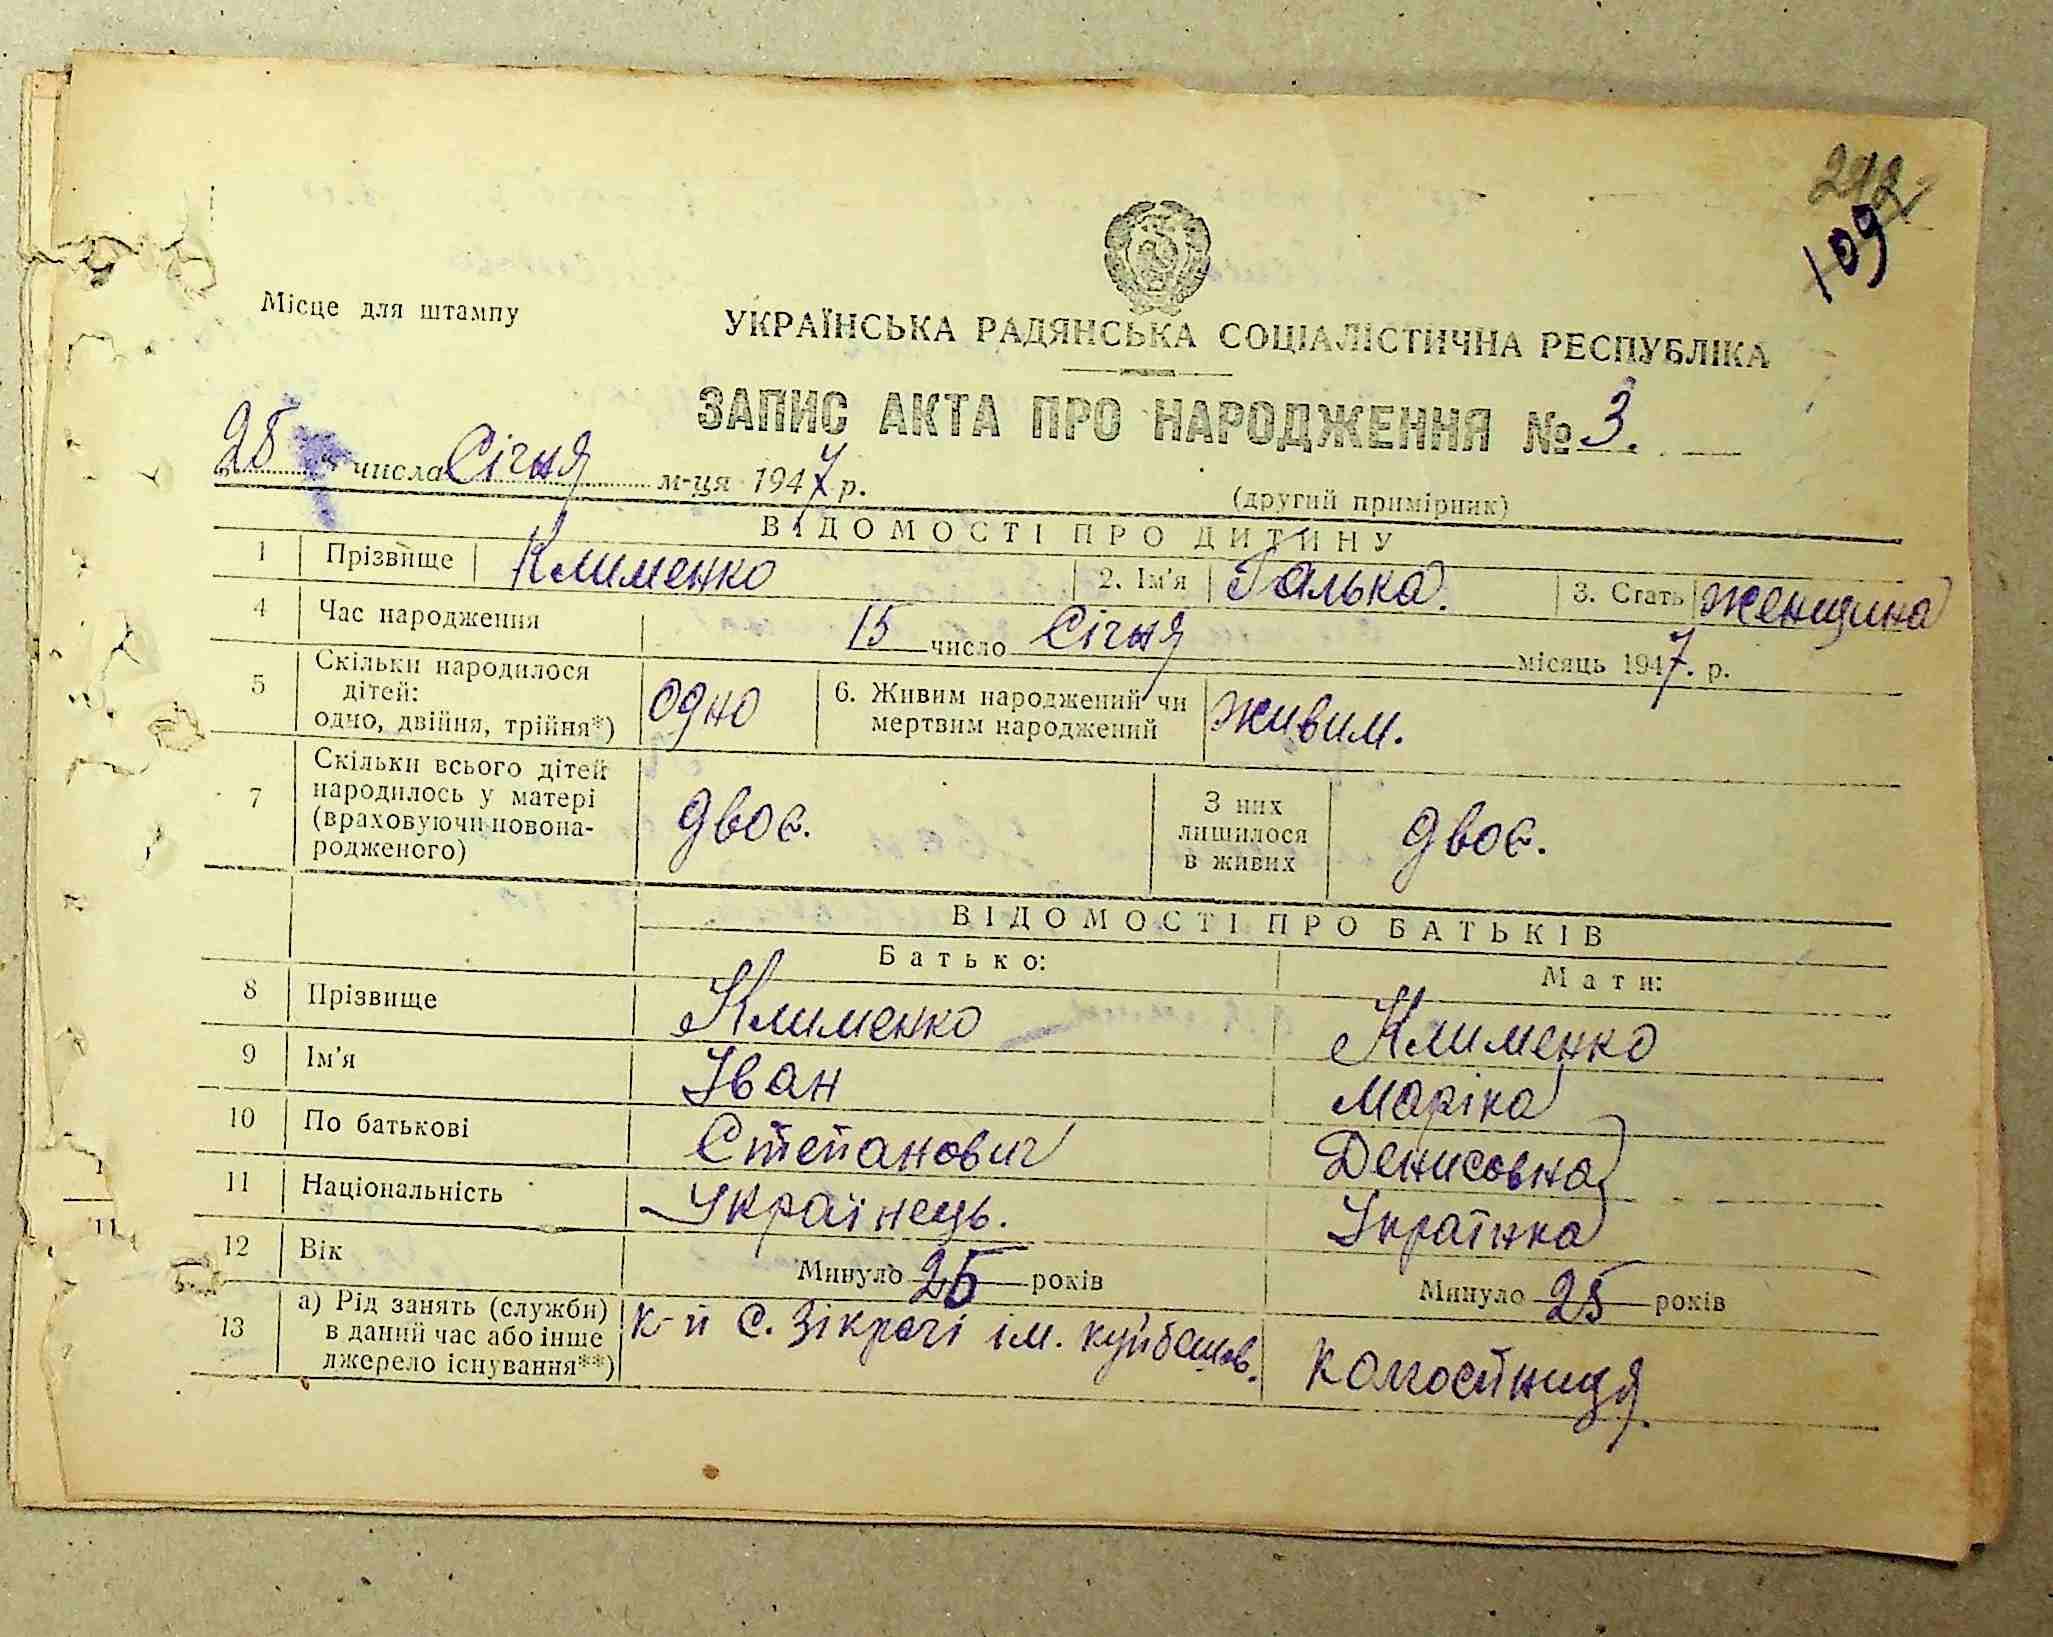 109
Місце для штампу
УКРАЇНСЬКА РАДЯНСЬКА СОЦІАЛІСТИЧНА РЕСПУБЛІКА
ЗАПИС АКТА ПРО НАРОДЖЕННЯ № 3.
28 числа Січня м-ця 1947 р.
(другий примірник)
ВІДОМОСТІ ПРО ДИТИНУ
1 Прізвище Клименко 2. Ім'я Галька. 3. Стать женщина
4 Час народження 15 число Січня місяць 1947. р.
5 Скільки народилося дітей: одно, двійня, трійня*) одно 6. Живим народжений чи мертвим народжений живим.
7 Скільки всього дітей народилось у матері (враховуючи новонародженого) двоє. З них лишилося в живих двоє.
ВІДОМОСТІ ПРО БАТЬКІВ
Батько: Мати:
8 Прізвище Клименко Клименко
9 Ім'я Іван Маріка
10 По батькові Степанович Денисовна
11 Національність Українець. Українка
12 Вік Минуло 25 років Минуло 25 років
13 а) Рід занять (служби) в даний час або інше джерело існування**) к-п с. Зікрачі ім. куйбешов. колгостниця